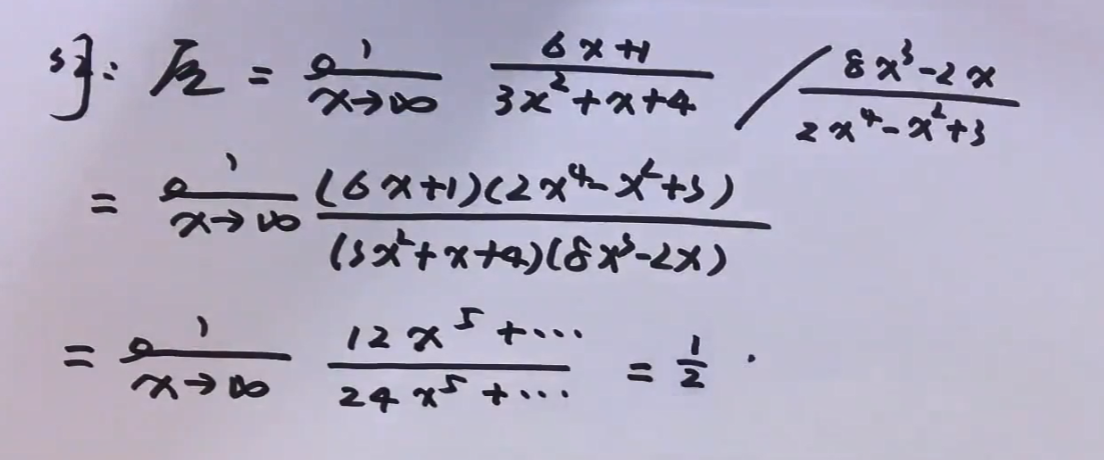 = lim x→∞ (6x+1)/(3x²+x+4) / (8x³-2x)/(2x⁴-x²+3)
= lim x→∞ (6x+1)(2x⁴-x²+3)/(3x²+x+4)(8x³-2x)
= lim x→∞ (12x⁵+···)/(24x⁵+···) = 1/2 .